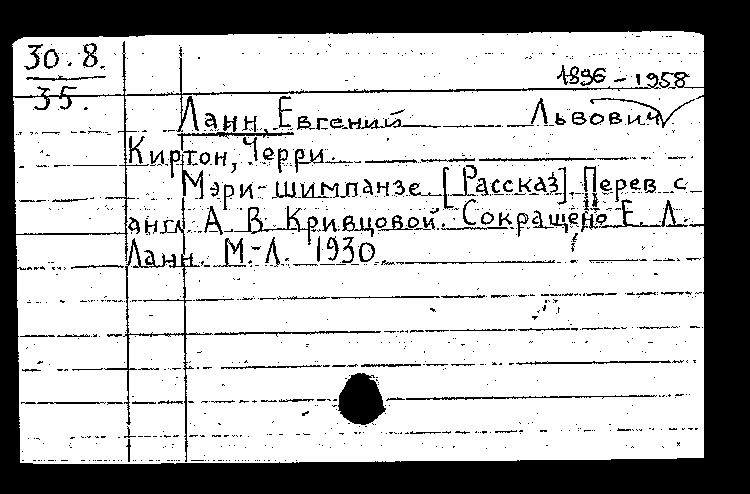 30.8.
35.
1896-1958
Ланн, Евгений Львович
Киртон, Черри.
Мэри-шимпанзе. [Рассказ]. Перев с
англ А. В. Кривцовой. Сокращено Е. Л.
Ланн. М.-Л. 1930.